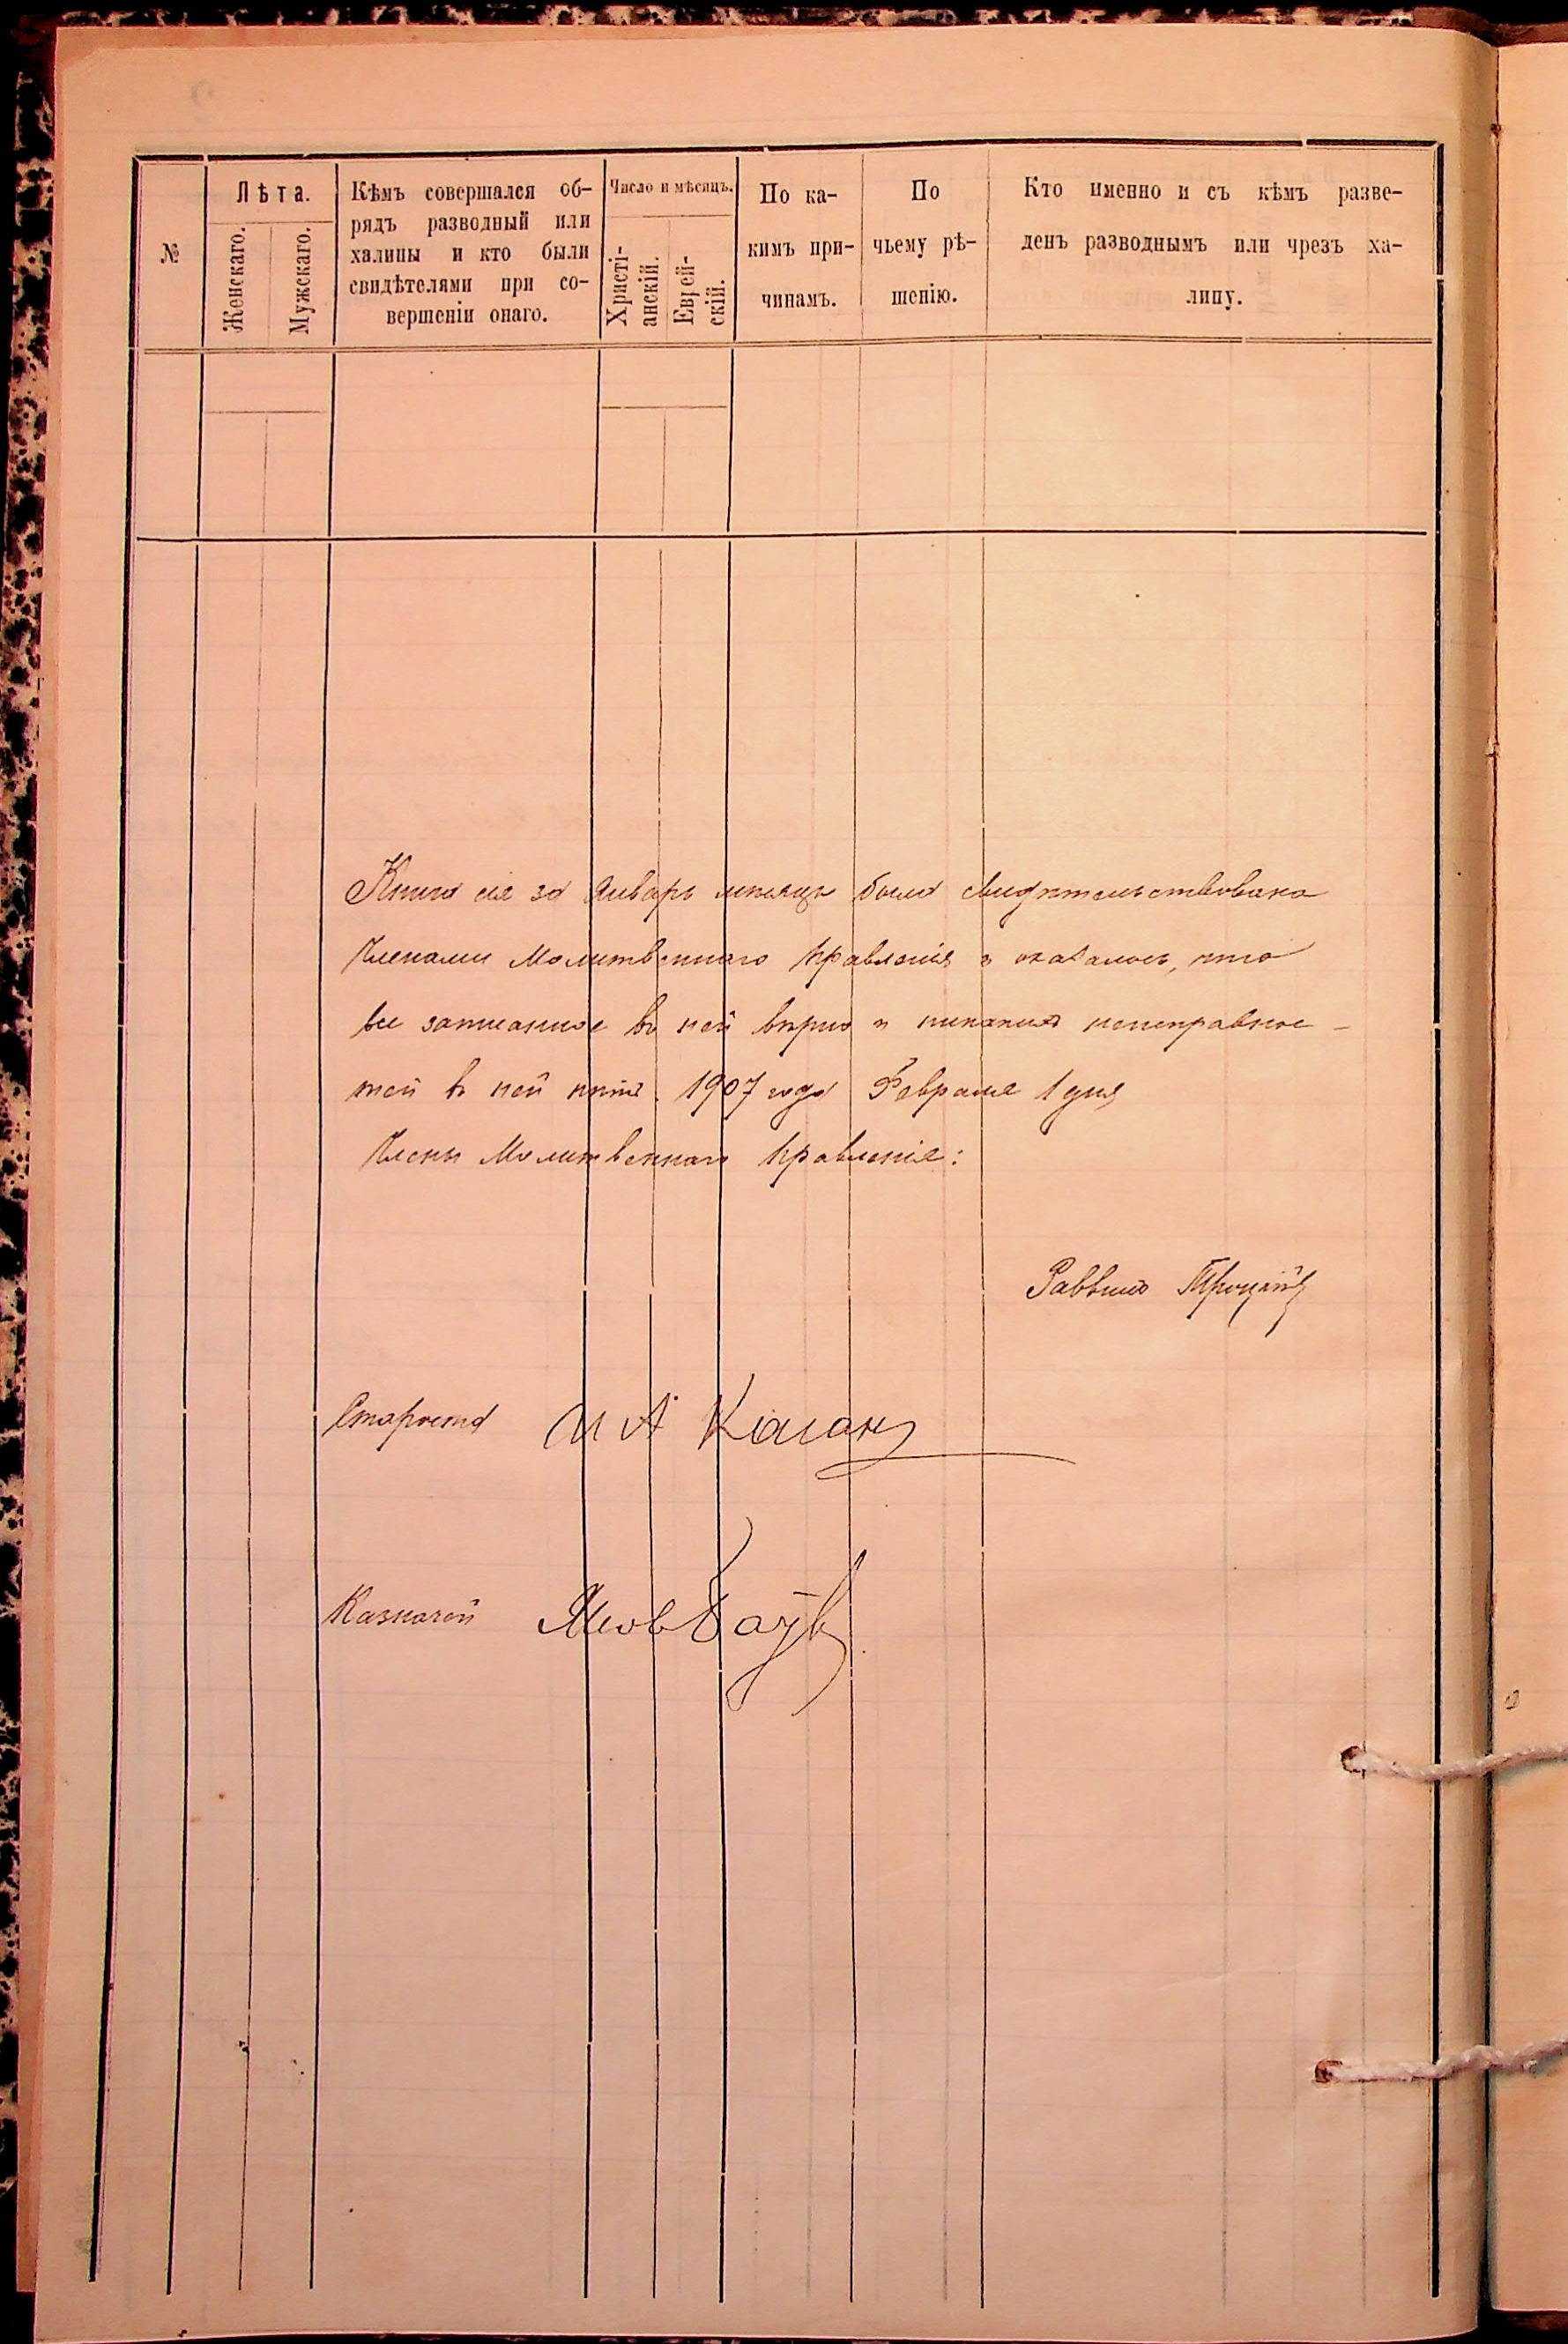 №
Лѣта.
Женскаго.
Мужскаго.
Кѣмъ совершался об-
рядъ разводный или
халицы и кто были
свидѣтелями при со-
вершеніи онаго.
Число и мѣсяцъ.
Христі-
анскій.
Еврей-
скій.
По ка-
кимъ при-
чинамъ.
По
чьему рѣ-
шенію.
Кто именно и съ кѣмъ разве-
денъ разводнымъ или чрезъ ха-
лицу.
Книга сія за Январь мѣсяцъ была свидѣтельствована
Членами Молитвеннаго Правленія и оказалось, что
все записанное въ ней вѣрно и никакихъ неисправнос-
тей въ ней нѣтъ. 1907 года Февраля 1 дня
Члены Молитвеннаго Правленія:
Раввинъ Троцкій
Староста И А Каганъ
Казначей